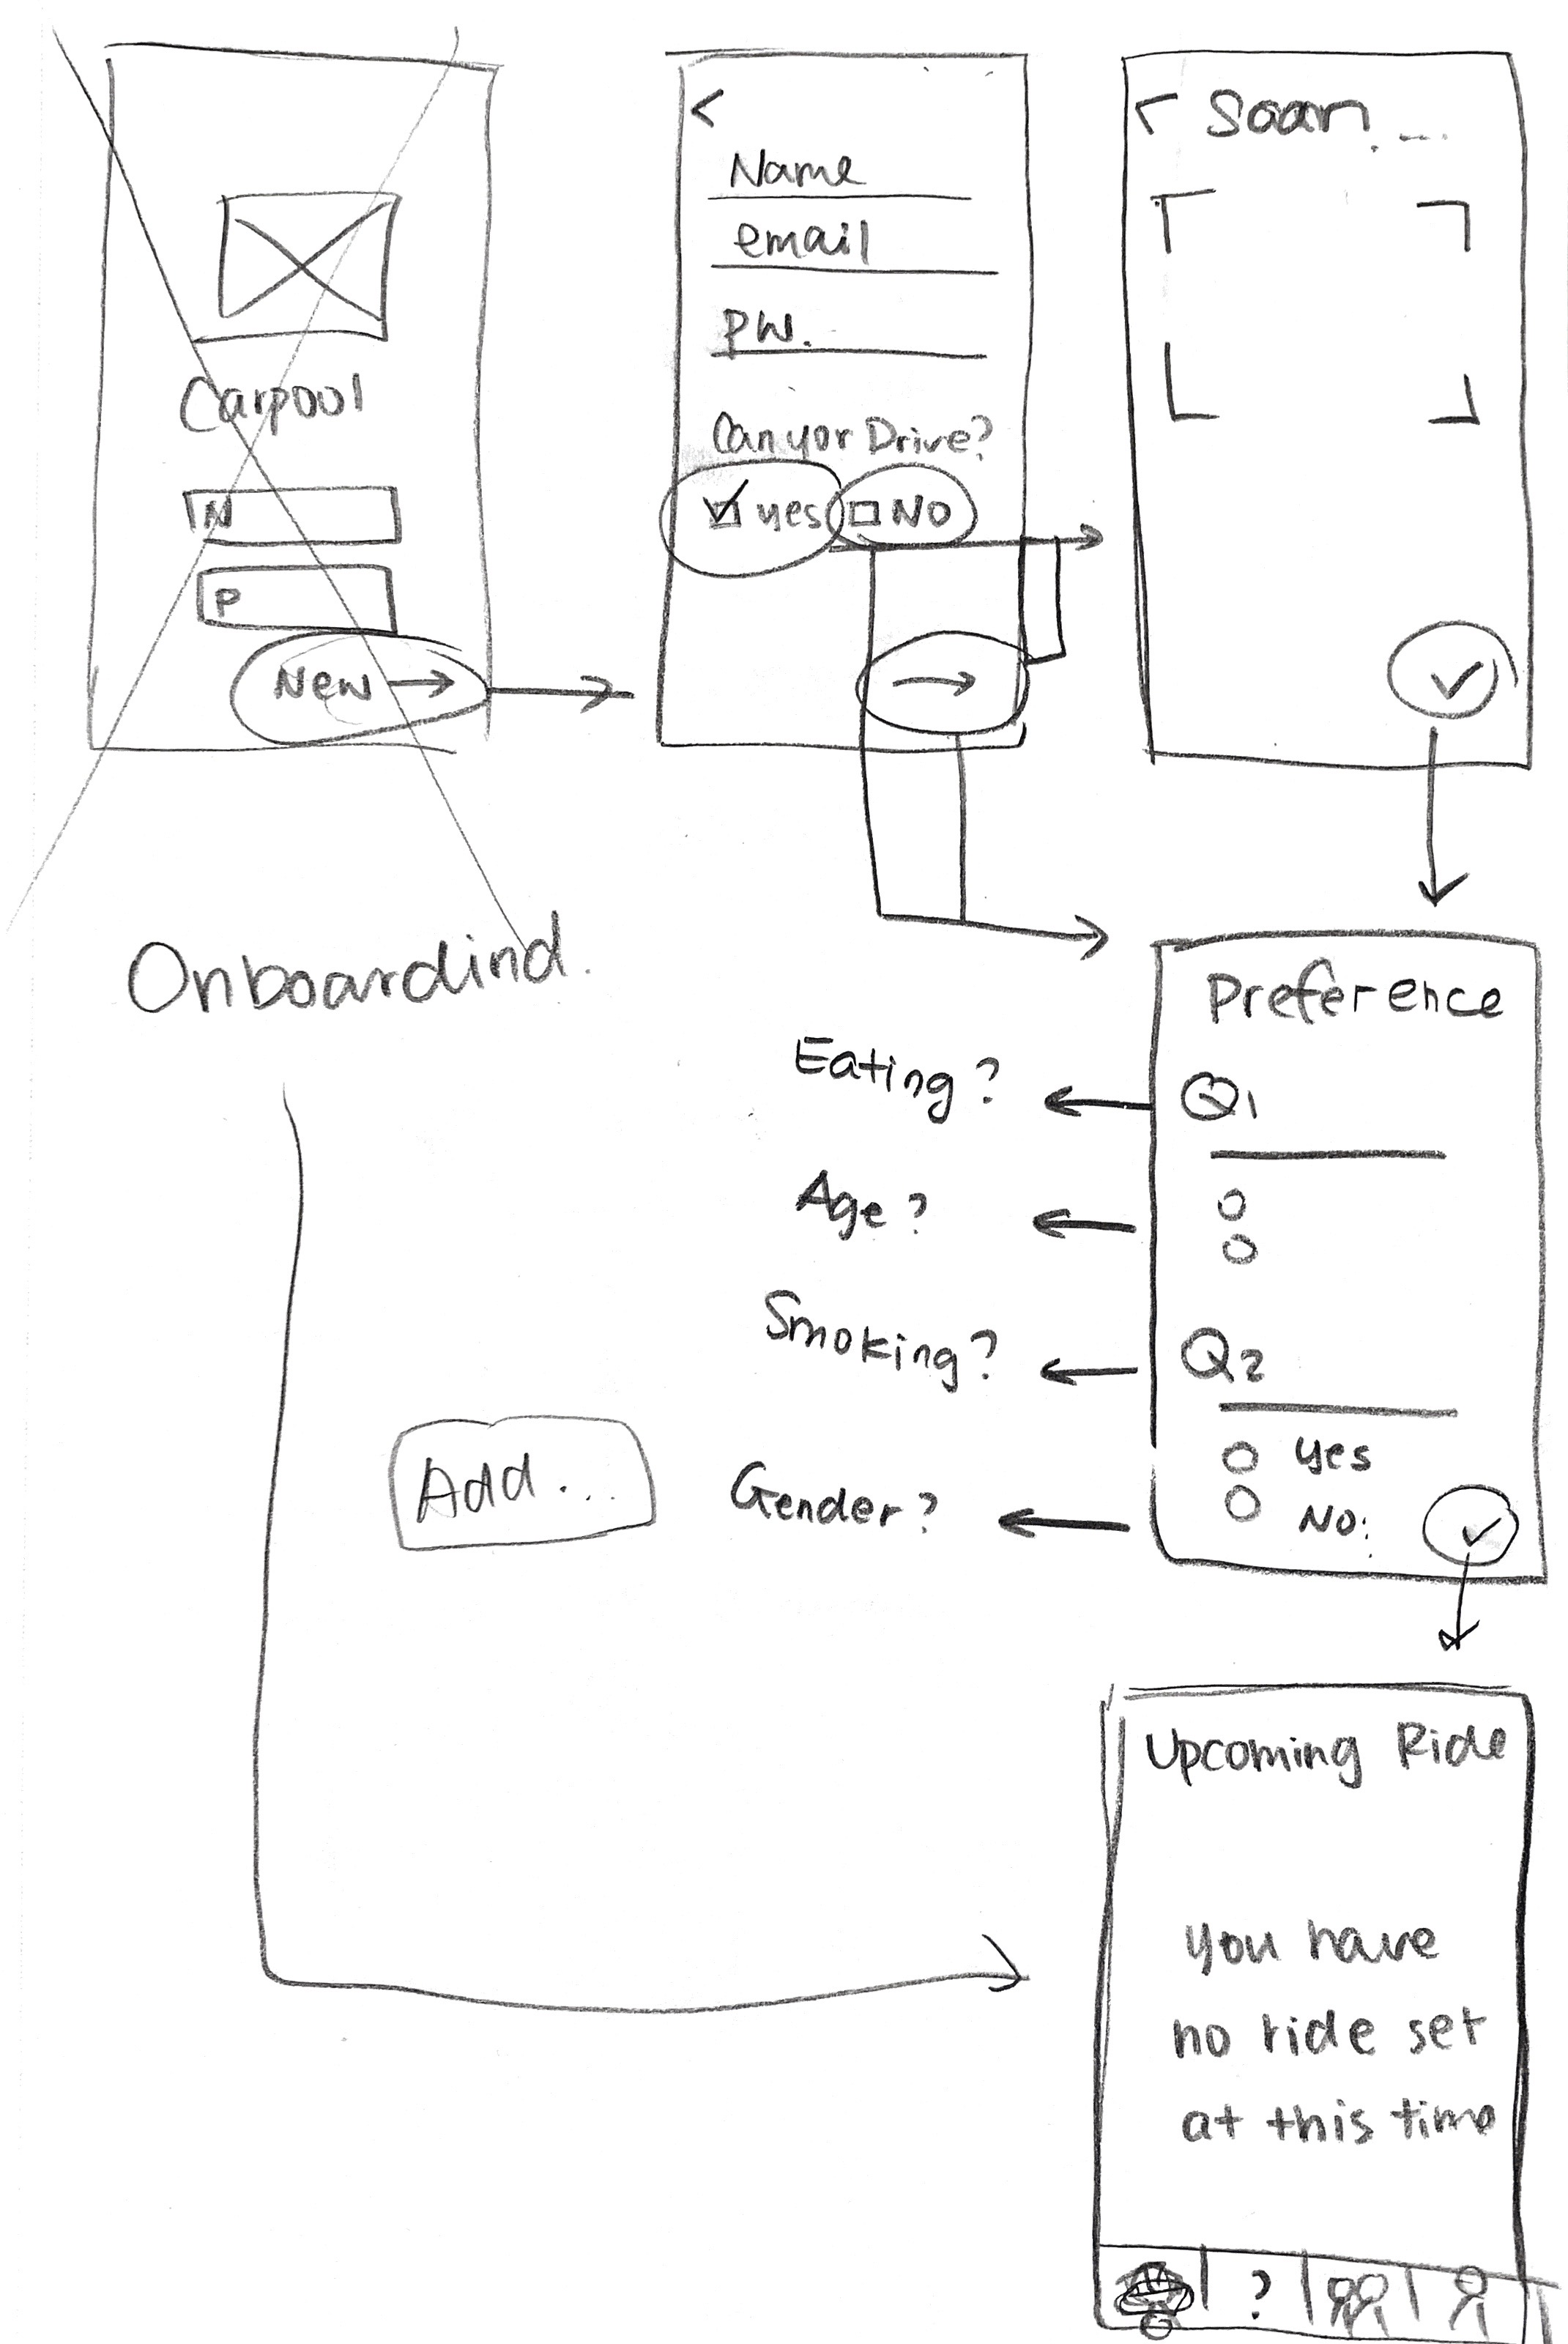 Carpool
N
P
New →
<
Name
email
PW.
Can yor Drive?
yes
NO
→
< Scan...
Onboardind.
Preference
Q1
Q2
yes
NO:
Eating?
Age?
Smoking?
Gender?
Add...
Upcoming Ride
you have
no ride set
at this time
?